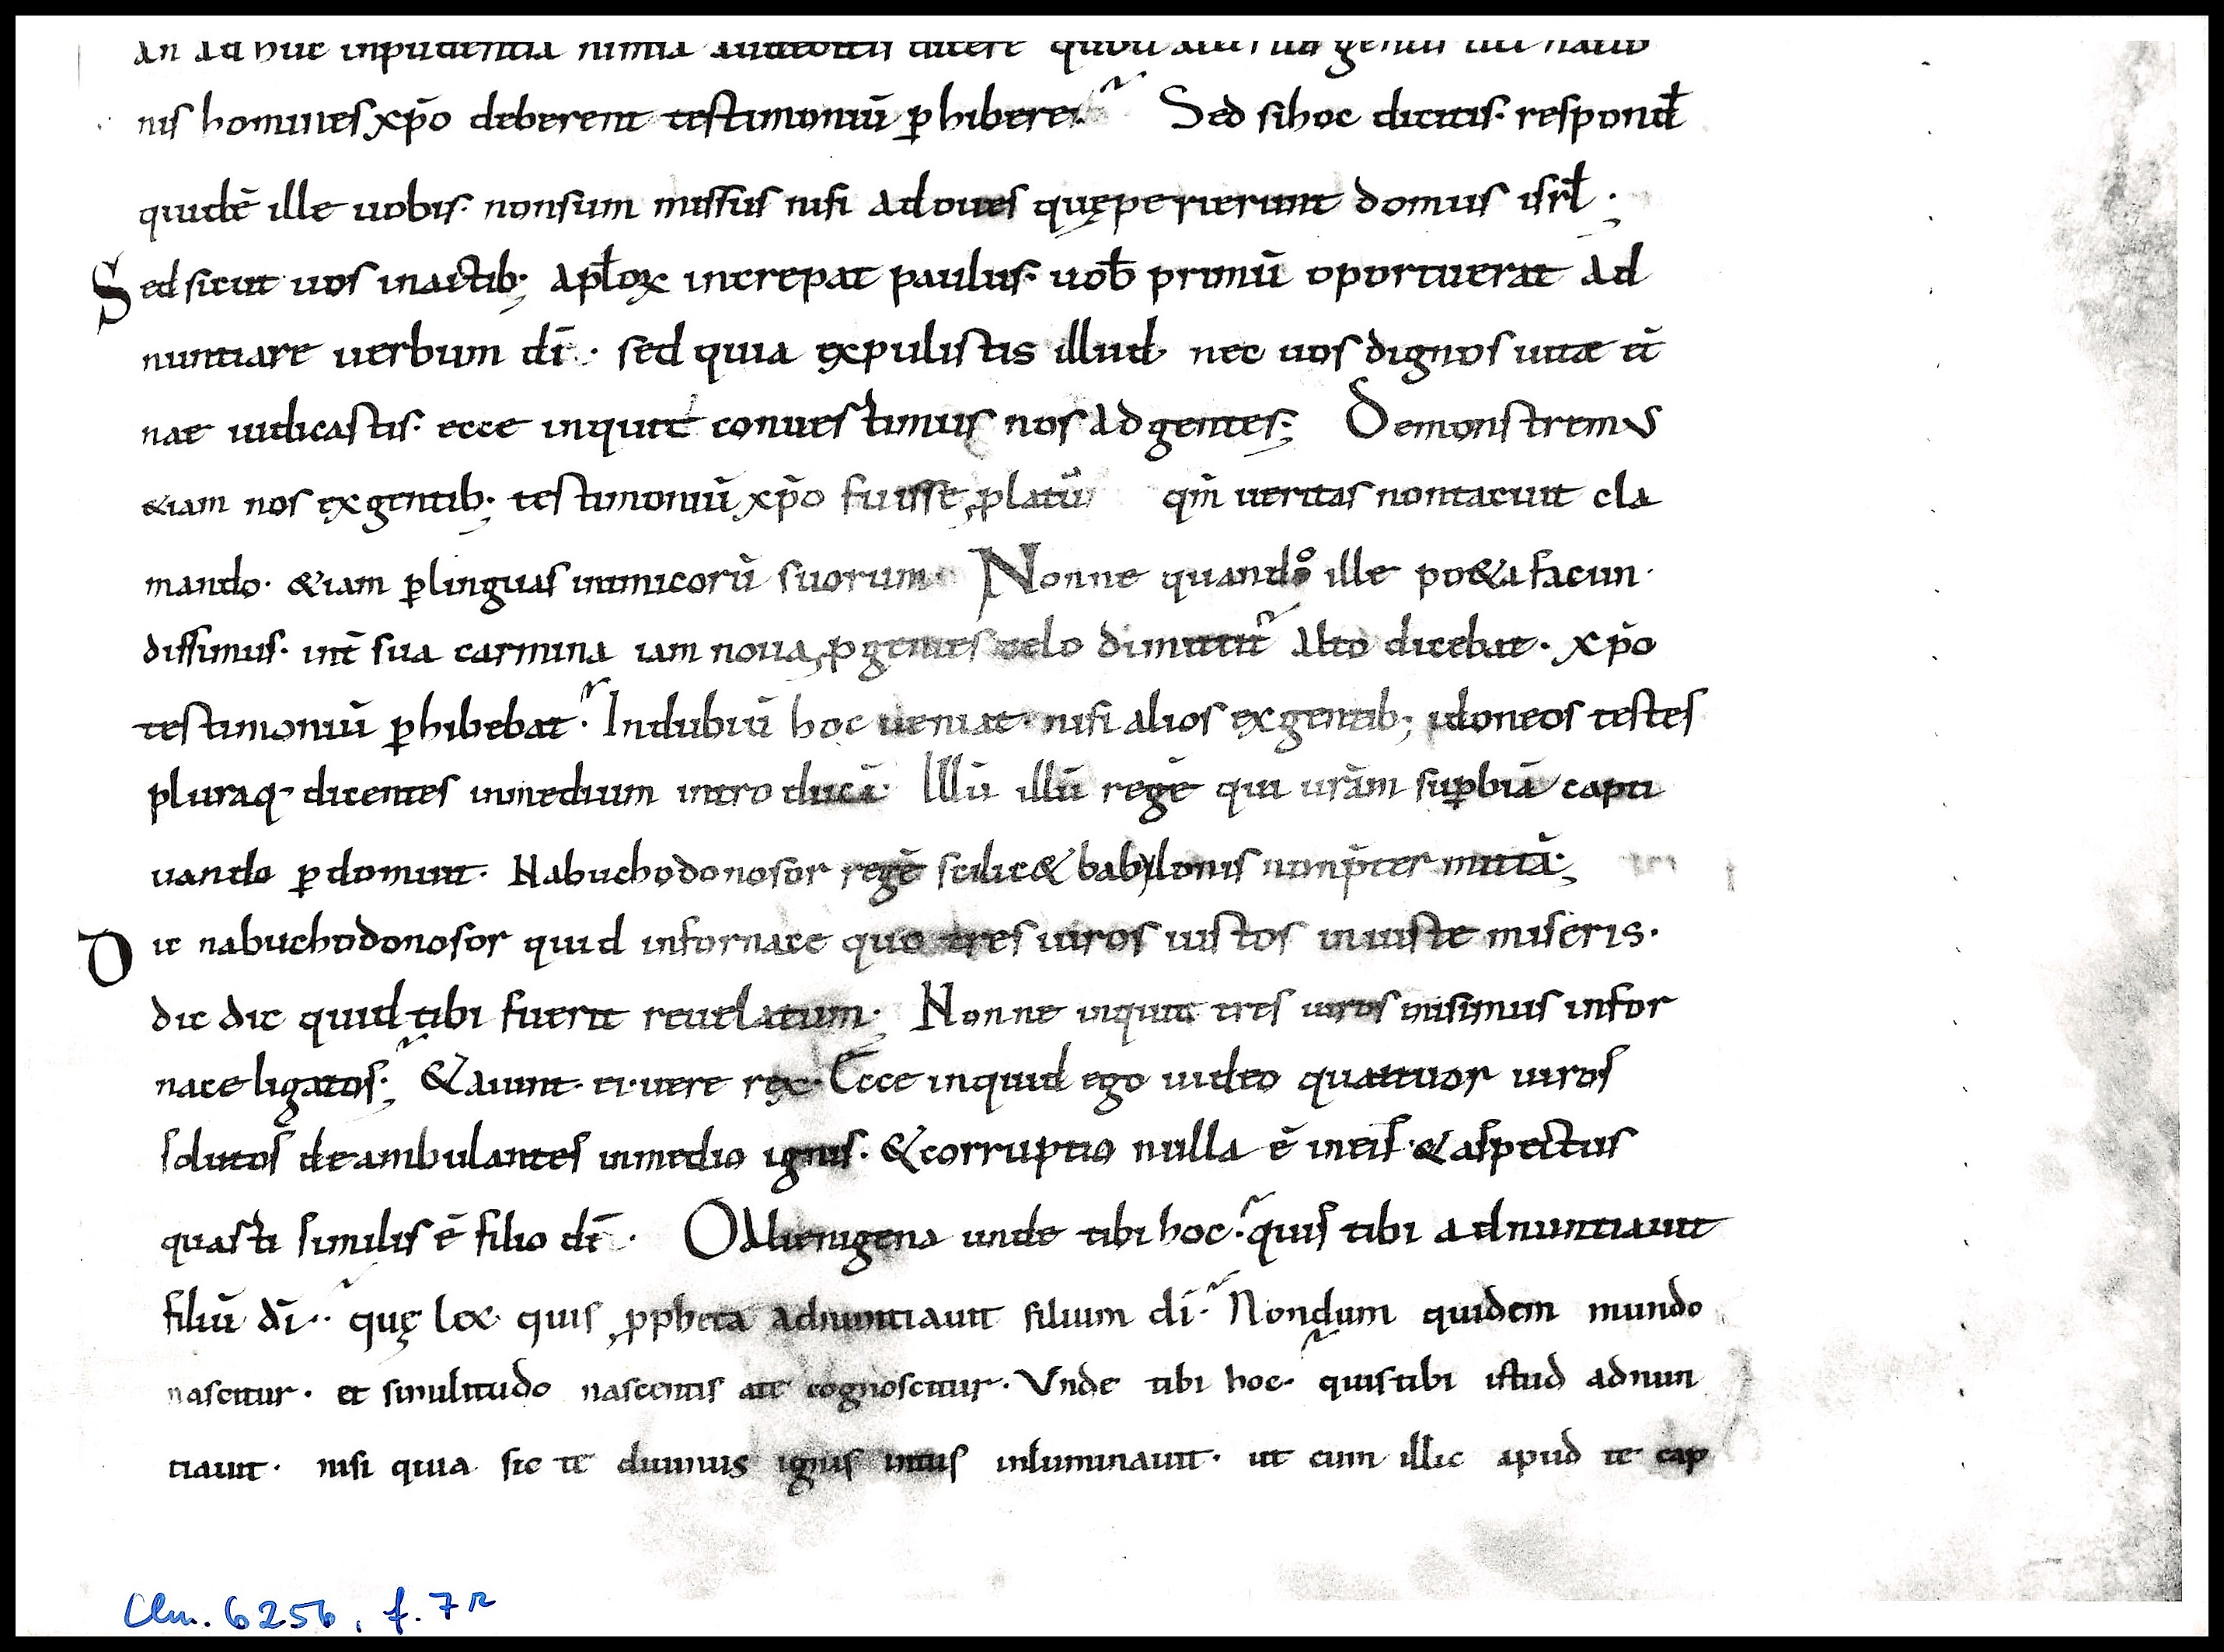 an ad huc inpudentia nimia audebitis dicere quod alterius gentis uel natio
nis homines xp̄o deberent testimoniū ꝑhibere. Sed sihoc dicitis· respond̄
quidē ille uobis· nonsum missus nisi adoues quęperierunt domus isrł·
Sed sicut uos inactib; apłoꝝ increpat paulus· uob̄ primū oportuerat ad
nuntiare uerbum dī· sed quia expulistis illud· nec uos dignos uitæ et̄
nae iudicastis· ecce inquit conuertimus nos adgentes; Demonstremus
&iam nos exgentib; testimoniū xp̄o fuisse ꝓlatū qm̄ ueritas nontacuit cla
mando· &iam ꝑlinguas inimicorū suorum Nonne quando ille po&a facun·
dissimus· int̄ sua carmina iam noua ꝓgenies celo dimittit̄ alto dicebat· xp̄o
testimoniū ꝑhibebat· Indubiū hoc ueniat· nisi alios exgentib; idoneos testes
pluraq· dicentes inmedium introducā· Illū illū regē qui urām suꝑbiā capti
uando ꝑdomuit· Nabuchodonosor regē scilic& babylonis nonp̄ter mittā;
Dic nabuchodonosor quid infornace quo tres uiros iustos iniuste miseris·
dic dic quid tibi fuerit reuelatum; Nonne inquit tres uiros misimus infor
nace ligatos; & aiunt· ei· uere rex· Ecce inquid ego uideo quattuor uiros
solutos deambulantes inmedio ignis· & corruptio nulla ē ineis· & aspectus
quarti similis ē filio dī· O alienigena unde tibi hoc· quis tibi adnuntiauit
filiū dī·· quę lex· quis ꝓpheta adnuntiauit filium dī· Nondum quidem mundo
nascitur· et similitudo nascentis a te cognoscitur· Vnde tibi hoc· quis tibi istud adnun
tiauit· nisi quia sic te diuinus ignis intus inluminauit· ut cum illic apud te cap
Clm. 6256, f. 7r